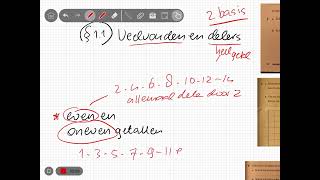 2 basis
(§ 1.1) Veelvouden en delers
heel getal
2 - 4 - 6 - 8 - 10 - 12 - 14
allemaal delen door 2
* even en
oneven getallen
1 - 3 - 5 - 7 - 9 - 11